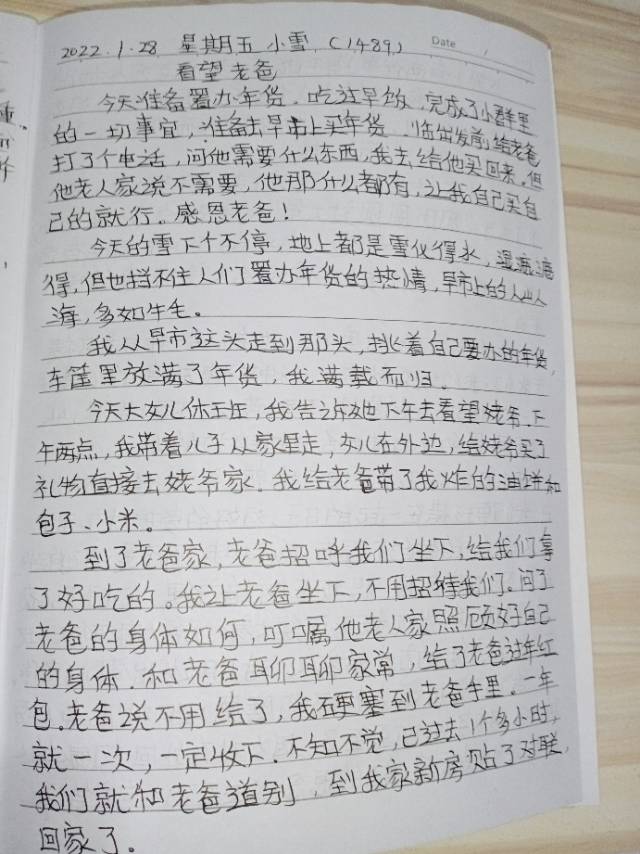 2022.1.28 星期五 小雪 (1489) Date
看望老爸
今天准备置办年货。吃过早饭,完成了小群里
的一切事宜,准备去早市上买年货。临出发前,给老爸
打了个电话,问他需要什么东西,我去给他买回来。但
他老人家说不需要,他那什么都有,让我自己买自
己的就行。感恩老爸!
今天的雪下个不停,地上都是雪化得水,湿漉漉
得,但也挡不住人们置办年货的热情,早市上的人山人
海,多如牛毛。
我从早市这头走到那头,挑着自己要办的年货,
车筐里放满了年货,我满载而归。
今天大女儿休班,我告诉她下午去看望姥爷。下
午两点,我带着儿子从家里走,女儿在外边,给姥爷买了
礼物直接去姥爷家。我给老爸带了我炸的油饼和
包子、小米。
到了老爸家,老爸招呼我们坐下,给我们拿
了好吃的。我让老爸坐下,不用招待我们。问了
老爸的身体如何,叮嘱他老人家照顾好自己
的身体。和老爸聊聊家常,给了老爸过年红
包。老爸说不用给了,我硬塞到老爸手里。一年
就一次,一定收下。不知不觉,已过去1个多小时,
我们就和老爸道别,到我家新房贴了对联,
回家了。